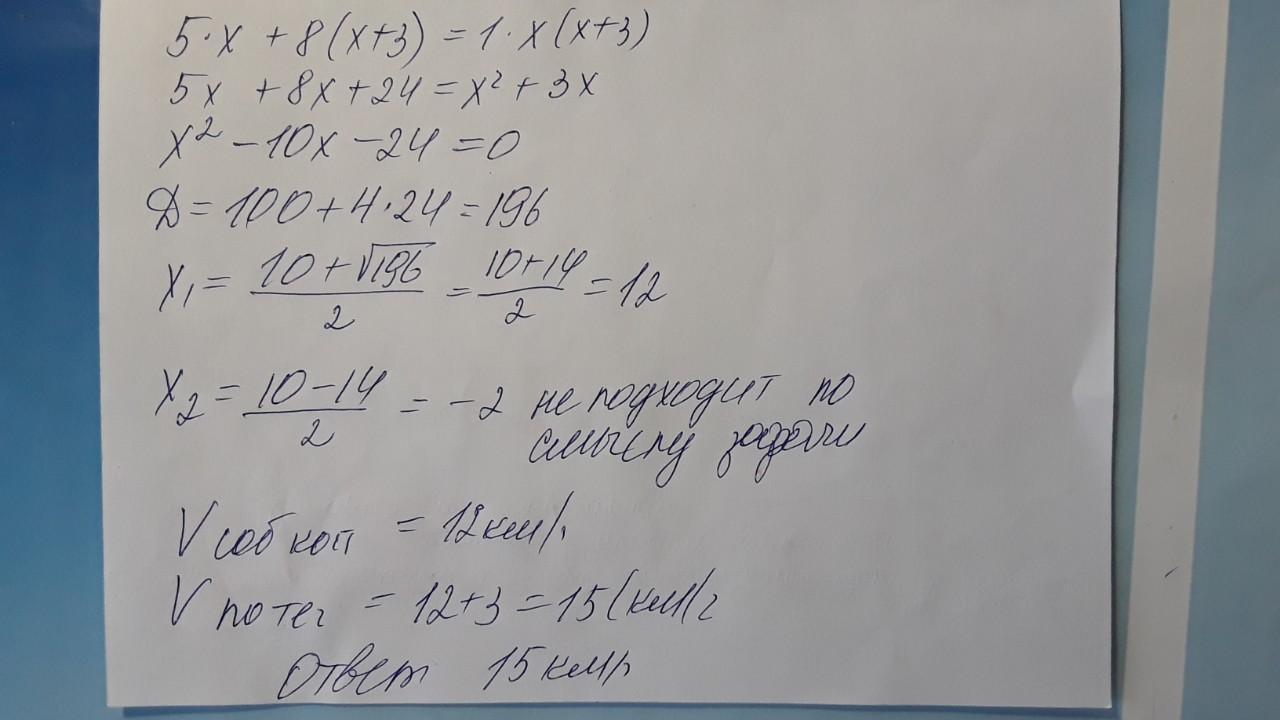 5·x + 8(x+3) = 1·x(x+3)
5x + 8x + 24 = x² + 3x
x² - 10x - 24 = 0
D = 100 + 4·24 = 196
x₁ = (10 + √196)/2 = (10+14)/2 = 12
x₂ = (10 - 14)/2 = -2 не подходит по
смыслу задачи
V соб коп = 12 км/ч
V по теч = 12+3 = 15 (км/ч
Ответ 15 км/ч